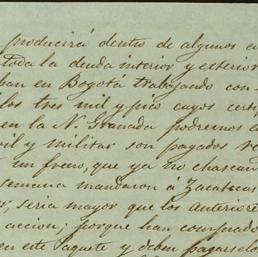 producirá dentro de algunos a
toda la deuda interior y exterior
ban en Bogotá trabajando con
los tres mil y pico cuyos certi
en la N. Granada podremos
vil y militar son pagados re
un freno, que ya no chascan
semana mandaron a Zacatecas
seria mayor que los anteriore
accion; porque han comprado
en este paquete y deben pagarselos